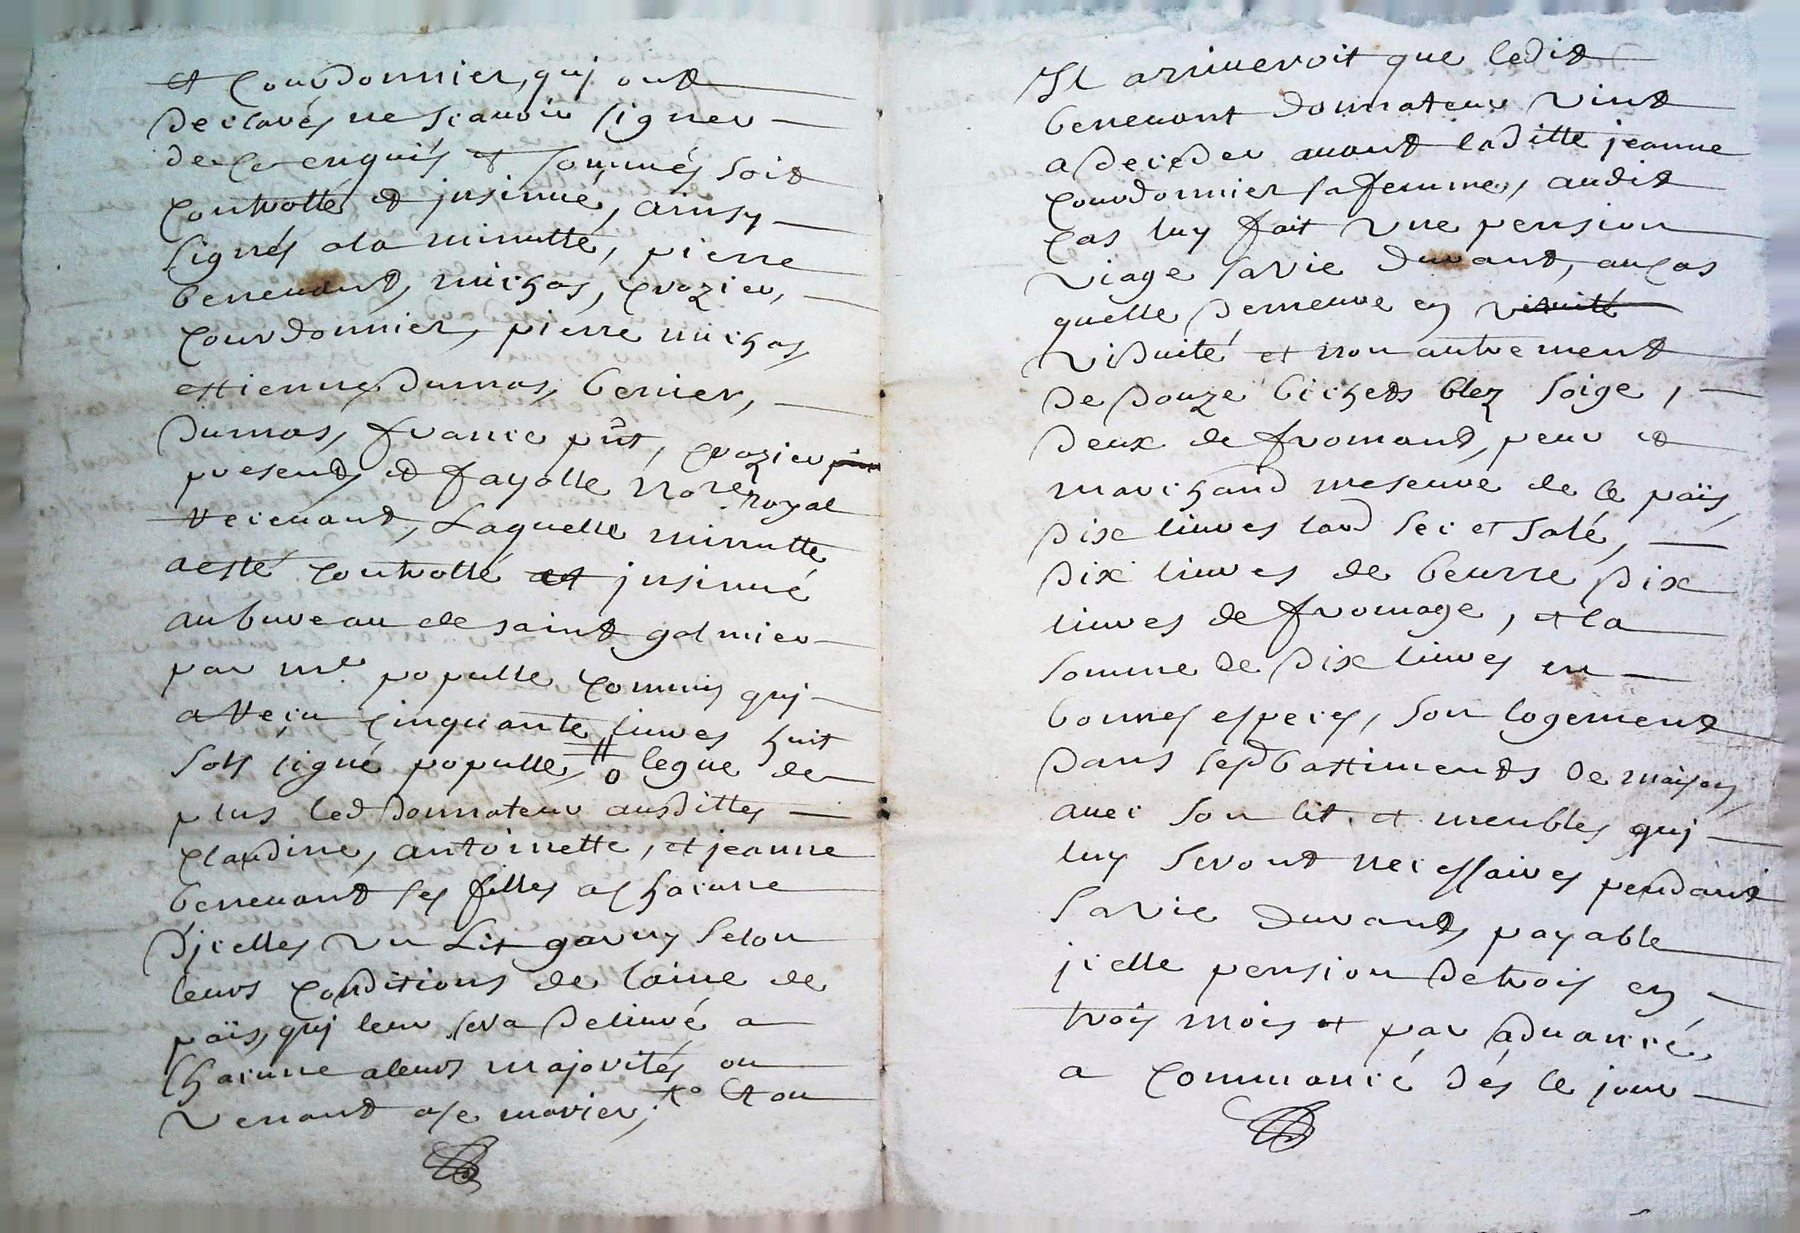 et Courdonnier, quj ont
declarés ne scauoir signer
de ce enquis et sommés soit
Controllé et jnsinué, ainsy
signés a la minutte, pierre
Beneuant, michas, Crozier,
Courdonnier, pierre michas,
ettienne Dumas, Berier,
Dumas, france pñt, Crozier
present, et fayolle nore royal
Receuant, Laquelle minutte
a esté Controllé et jnsinué
au bureau de saint galmier
par me populle Commis quj
a Receu Cinquante liures huit
sols signé populle, # legue de
plus led donnateur ausdittes
Claudine, antoinette, et jeanne
Beneuant ses filles a chacune
d'jcelles vn Lit garny selon
leurs Conditions de laine de
païs, quj leur sera deliuré a
Chacune a leurs majorités ou
venant a se marier, Et ou
Il arriueroit que ledit
Beneuant donnateur vint
a deceder auant laditte jeanne
Courdonnier sa femme, audit
Cas luy fait vne pension
viage sa vie durant, au cas
quelle demeure en
viduité et non autrement
de douze bichets blez soige,
deux de fromant, peur et
marchand meseure de ce païs,
dix liures lard sec et salé,
dix liures de beurre dix
liures de fromage, et la
somme de dix liures en
bonnes especes, son logement
dans sesd battiments de maison
auec son lit et meubles quj
luy seront necessaires pendant
sa vie durant, payable
jcelle pension de trois en
trois mois et par aduancé,
a Commancé dés le jour